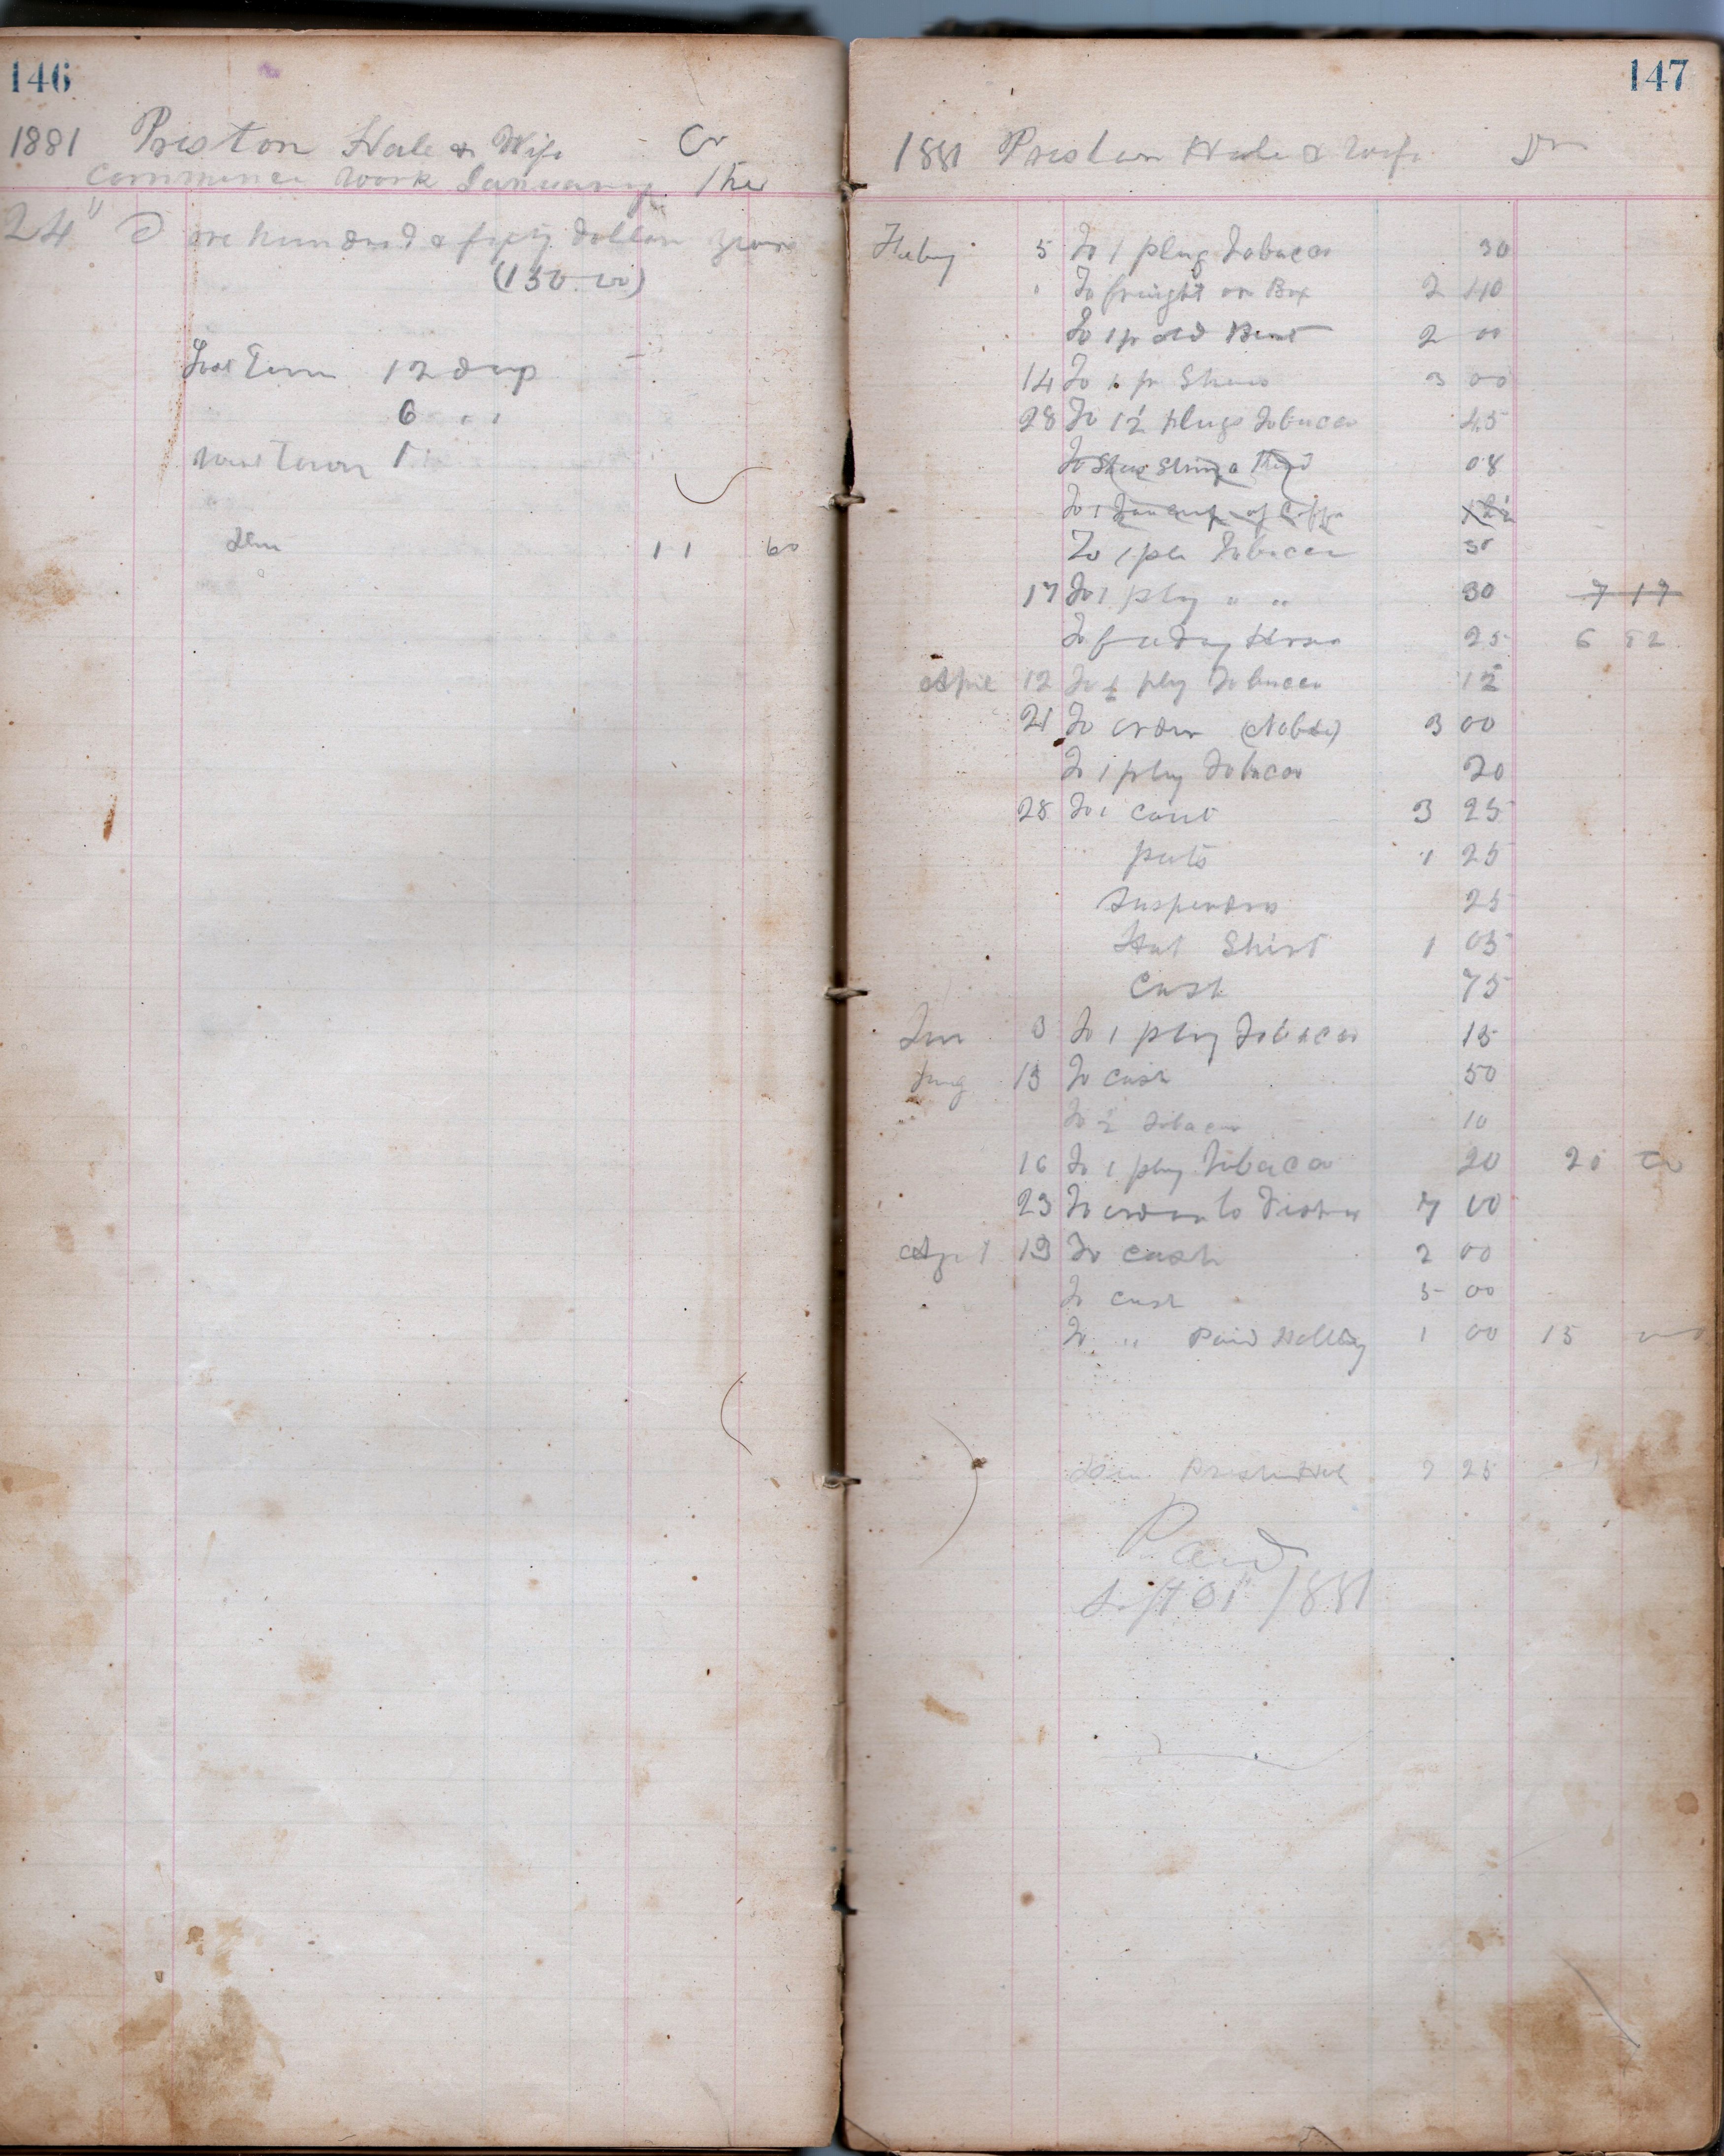 146
1881 Preston Hale & Wife - Cr
Commence work January the
24" One hundred & fifty dollars year
(150.00)
Lost Time 12 days
6 " "
Lost Time 1 "
11 60
147
1881 Preston Hale & Wife Dr
Feby 5 To 1 plug Tobacco 30
" To freight on Box 2 40
To 1 pr old Boots 2 00
14 To 1 pr Shoes 3 00
28 To 1½ Plugs Tobacco 45
To Shoe Strings 08
To 1 of Coffe
To 1 plu Tobacco 30
17 To 1 plug " " 30 7 17
To feeding Horse 25 6 52
April 12 To ½ plug Tobacco 12
21 To order 3 00
To 1 plug Tobacco 20
28 To 1 Coat 3 25
pants 1 25
Suspenders 25
Hat Shirt 1 05
Cash 75
3 To 1 plug Tobacco 15
13 To cash 50
To ½ Tobacco 10
16 To 1 plug Tobacco 20 20
23 To order to 7 00
19 To cash 2 00
To cash 5 00
To " Paid 1 00 15
Preston Hale 2 25
Paid
Sept 01" 1881